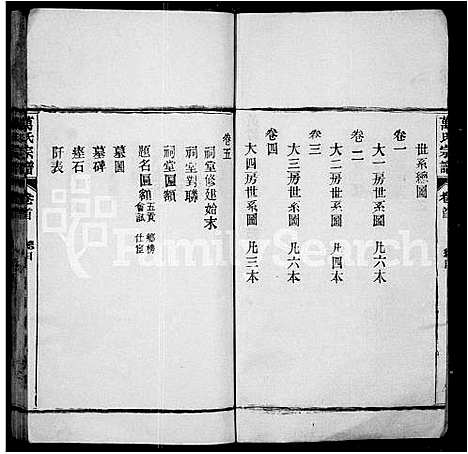 萬氏宗譜 卷首
世系總圖
卷一
大一房世系圖 凡六本
卷二
大二房世系圖 凡四本
卷三
大三房世系圖 凡六本
卷四
大四房世系圖 凡三本
卷五
祠堂修建始末
祠堂對聯
祠堂匾額
題名匾額 五貢 鄉榜 會試 仕宦
墓圖
墓碑
座石
阡表
萬氏宗譜 卷首
FamilySearch